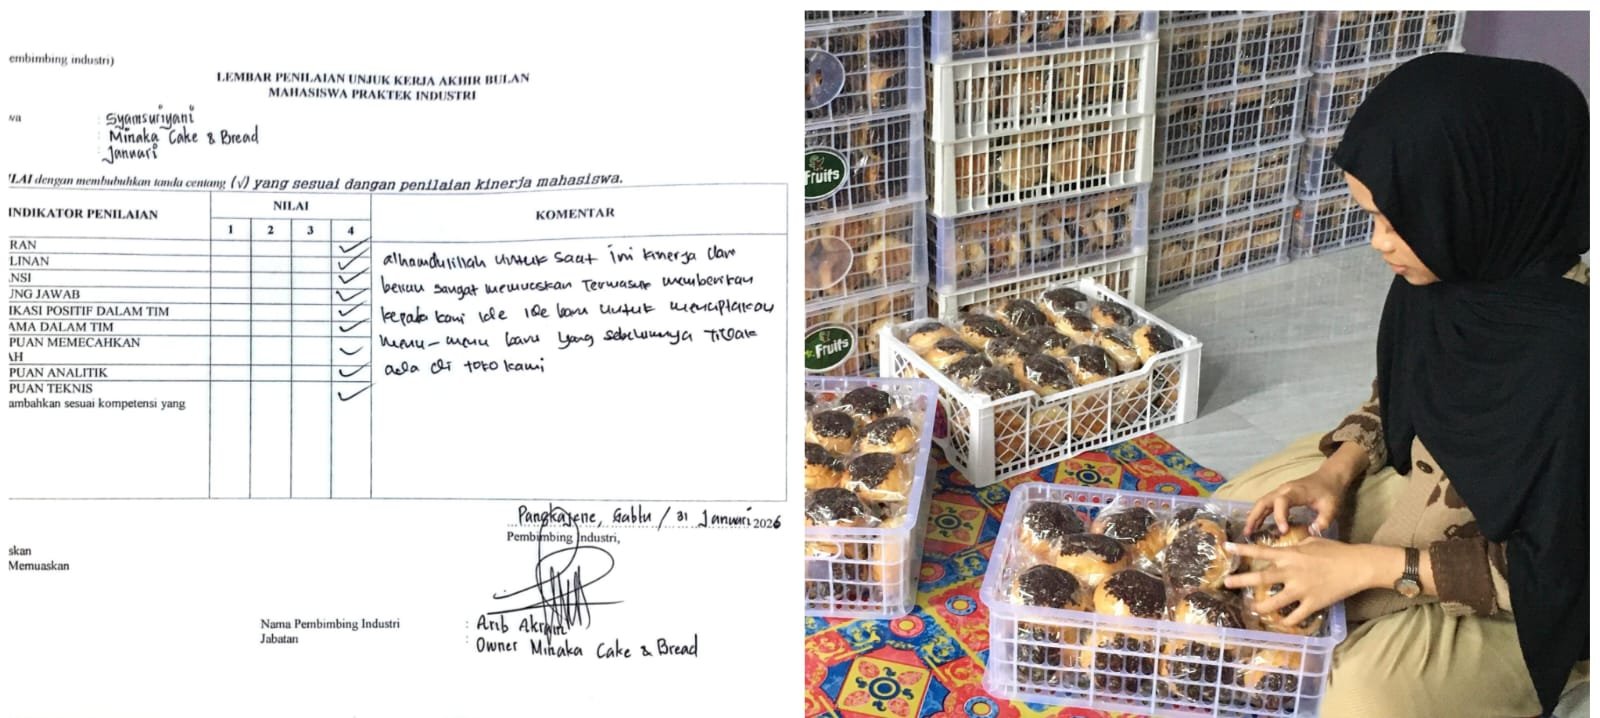 embimbing industri)
LEMBAR PENILAIAN UNJUK KERJA AKHIR BULAN
MAHASISWA PRAKTEK INDUSTRI
wa : Syamsuriyani
: Minaka Cake & Bread
: Januari
LAI dengan membubuhkan tanda centang (√) yang sesuai dangan penilaian kinerja mahasiswa.
INDIKATOR PENILAIAN NILAI KOMENTAR
1 2 3 4
RAN ✓
LINAN ✓
NSI ✓
NG JAWAB ✓
IKASI POSITIF DALAM TIM ✓
AMA DALAM TIM ✓
PUAN MEMECAHKAN
AH ✓
PUAN ANALITIK ✓
PUAN TEKNIS ✓
ambahkan sesuai kompetensi yang
alhamdulillah untuk saat ini kinerja dari
beliau sangat memuaskan Termasuk memberikan
kepada kami ide ide baru untuk menciptakan
menu-menu baru yang sebelumnya Tidak
ada di toko kami
Pangkajene, Sabtu / 31 Januari 2026
Pembimbing Industri,
skan
Memuaskan
Nama Pembimbing Industri : Arib Akram
Jabatan : Owner Minaka Cake & Bread
Fruits
Fruits